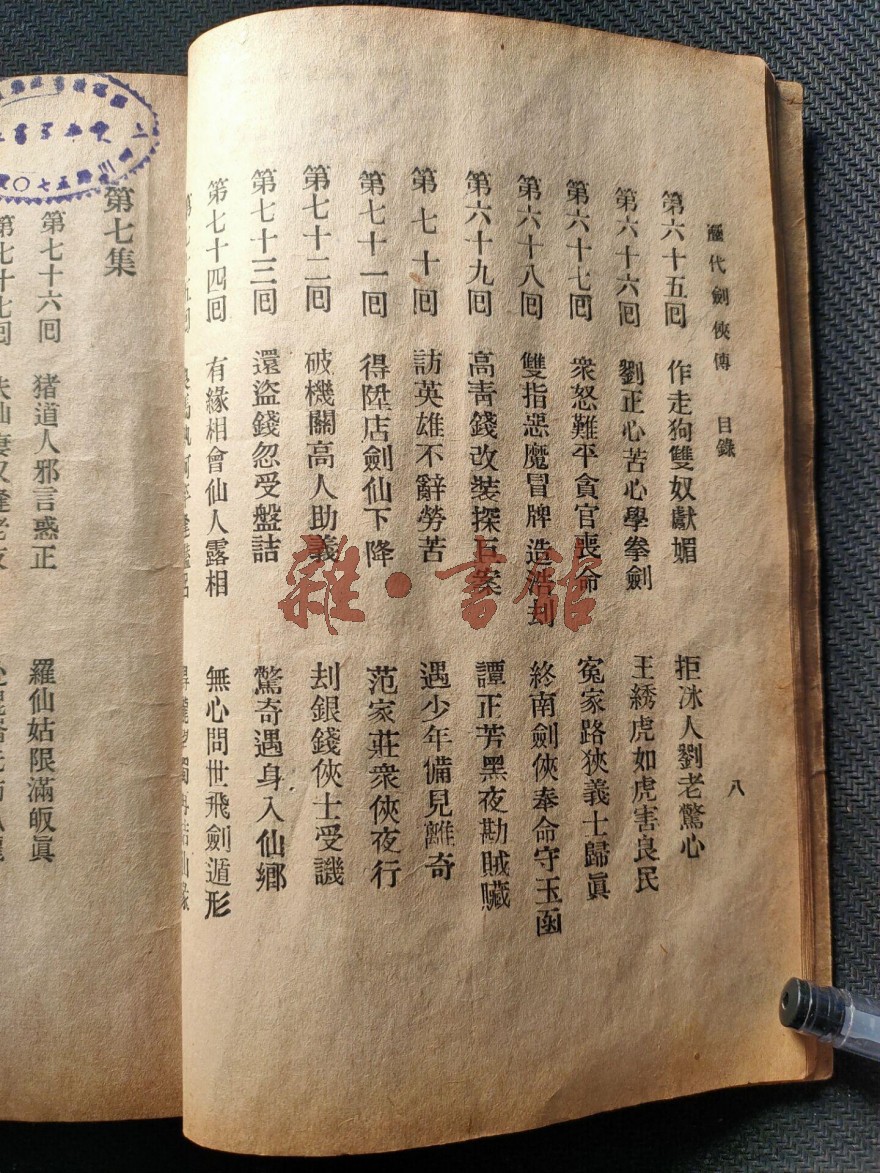 歷代劍俠傳 目錄 八
第六十五囘 作走狗雙奴獻媚 拒冰人劉老驚心
第六十六囘 劉正心苦心學拳劍 王綉虎如虎害良民
第六十七囘 衆怒難平貪官喪命 冤家路狹義士歸眞
第六十八囘 雙指惡魔冒牌造浩刦 終南劍俠奉命守玉函
第六十九囘 高靑錢改裝探巨案 譚正芳黑夜勘賊贓
第七十囘 訪英雄不辭勞苦 遇少年備見離奇
第七十一囘 得陞店劍仙下降 范家莊衆俠夜行
第七十二囘 破機關高人助義 刦銀錢俠士受譏
第七十三囘 還盜錢忽受盤詰 驚奇遇身入仙鄉
第七十四囘 有緣相會仙人露相 無心問世飛劍遁形
第七集
第七十六囘 猪道人邪言惑正 羅仙姑限滿皈眞
第七十七囘
雜·書館